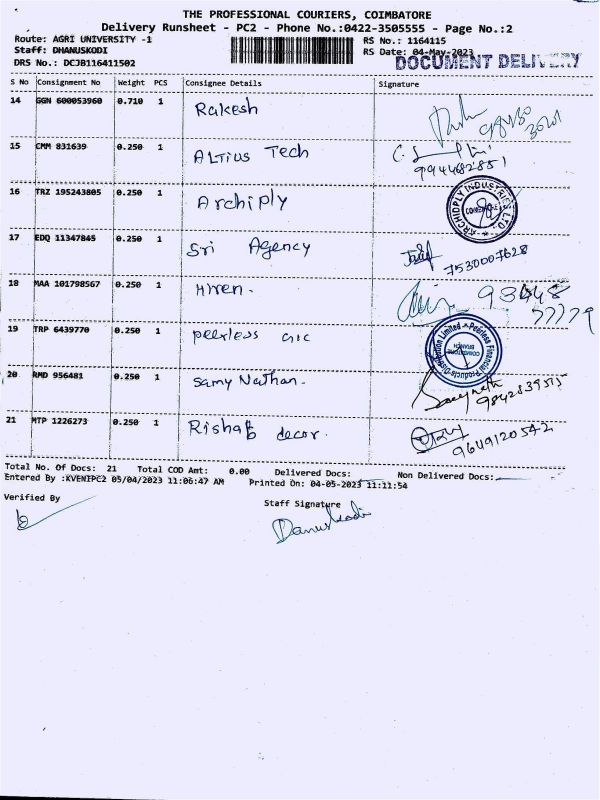 THE PROFESSIONAL COURIERS, COIMBATORE
Delivery Runsheet - PC2 - Phone No.:0422-3505555 - Page No.:2
Route: AGRI UNIVERSITY -1
RS No.: 1164115
Staff: DHANUSKODI
RS Date: 04-May-2023
DRS No.: DCJB116411502
DOCUMENT DELIVERY
S No Consignment No Weight PCS Consignee Details Signature
14 GGN 600053960 0.710 1 Rakesh
15 CMM 831639 0.250 1 Altius Tech
9944682851
16 TRZ 195243805 0.250 1 Archiply
ARCHIDPLY INDUSTRIES LTD
17 EDQ 11347845 0.250 1 Sri Agency
7530007628
18 MAA 101798567 0.250 1 Hiren.
93448
77779
19 TRP 6439770 0.250 1 peerless
Peerless Financial Products Distribution Limited
COIMBATORE BRANCH
20 RMD 956481 0.250 1 Samy Nathan.
9842839515
21 MTP 1226273 0.250 1 Rishab decor.
9649120542
Total No. Of Docs: 21 Total COD Amt: 0.00 Delivered Docs: Non Delivered Docs:
Entered By :KVENIPC2 05/04/2023 11:06:47 AM Printed On: 04-05-2023 11:11:54
Verified By
Staff Signature
Danuskodi